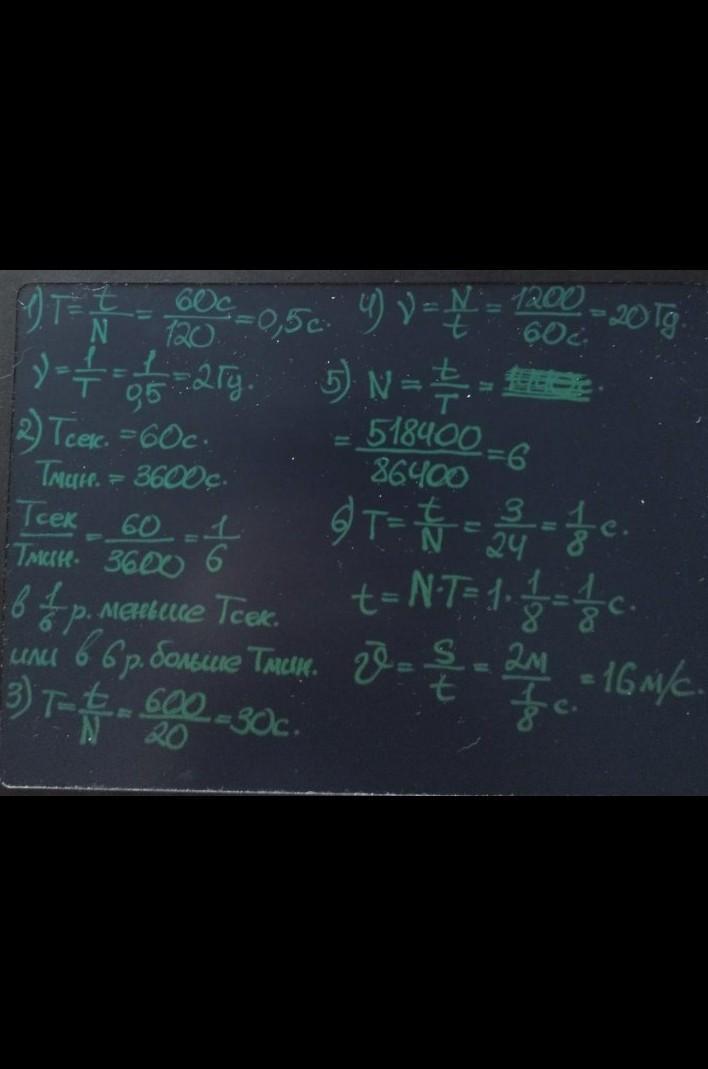 1) T = t/N = 60с/120 = 0,5с.
ν = 1/T = 1/0,5 = 2Гц.
2) Tсек. = 60с.
Tмин. = 3600с.
Tсек/Tмин. = 60/3600 = 1/6
в 1/6 р. меньше Tсек.
или в 6 р. больше Tмин.
3) T = t/N = 600/20 = 30с.
4) ν = N/t = 1200/60с. = 20Гц
5) N = t/T =
= 518400/86400 = 6
6) T = t/N = 3/24 = 1/8 с.
t = N·T = 1·1/8 = 1/8 с.
ϑ = S/t = 2м/1/8 с. = 16м/с.